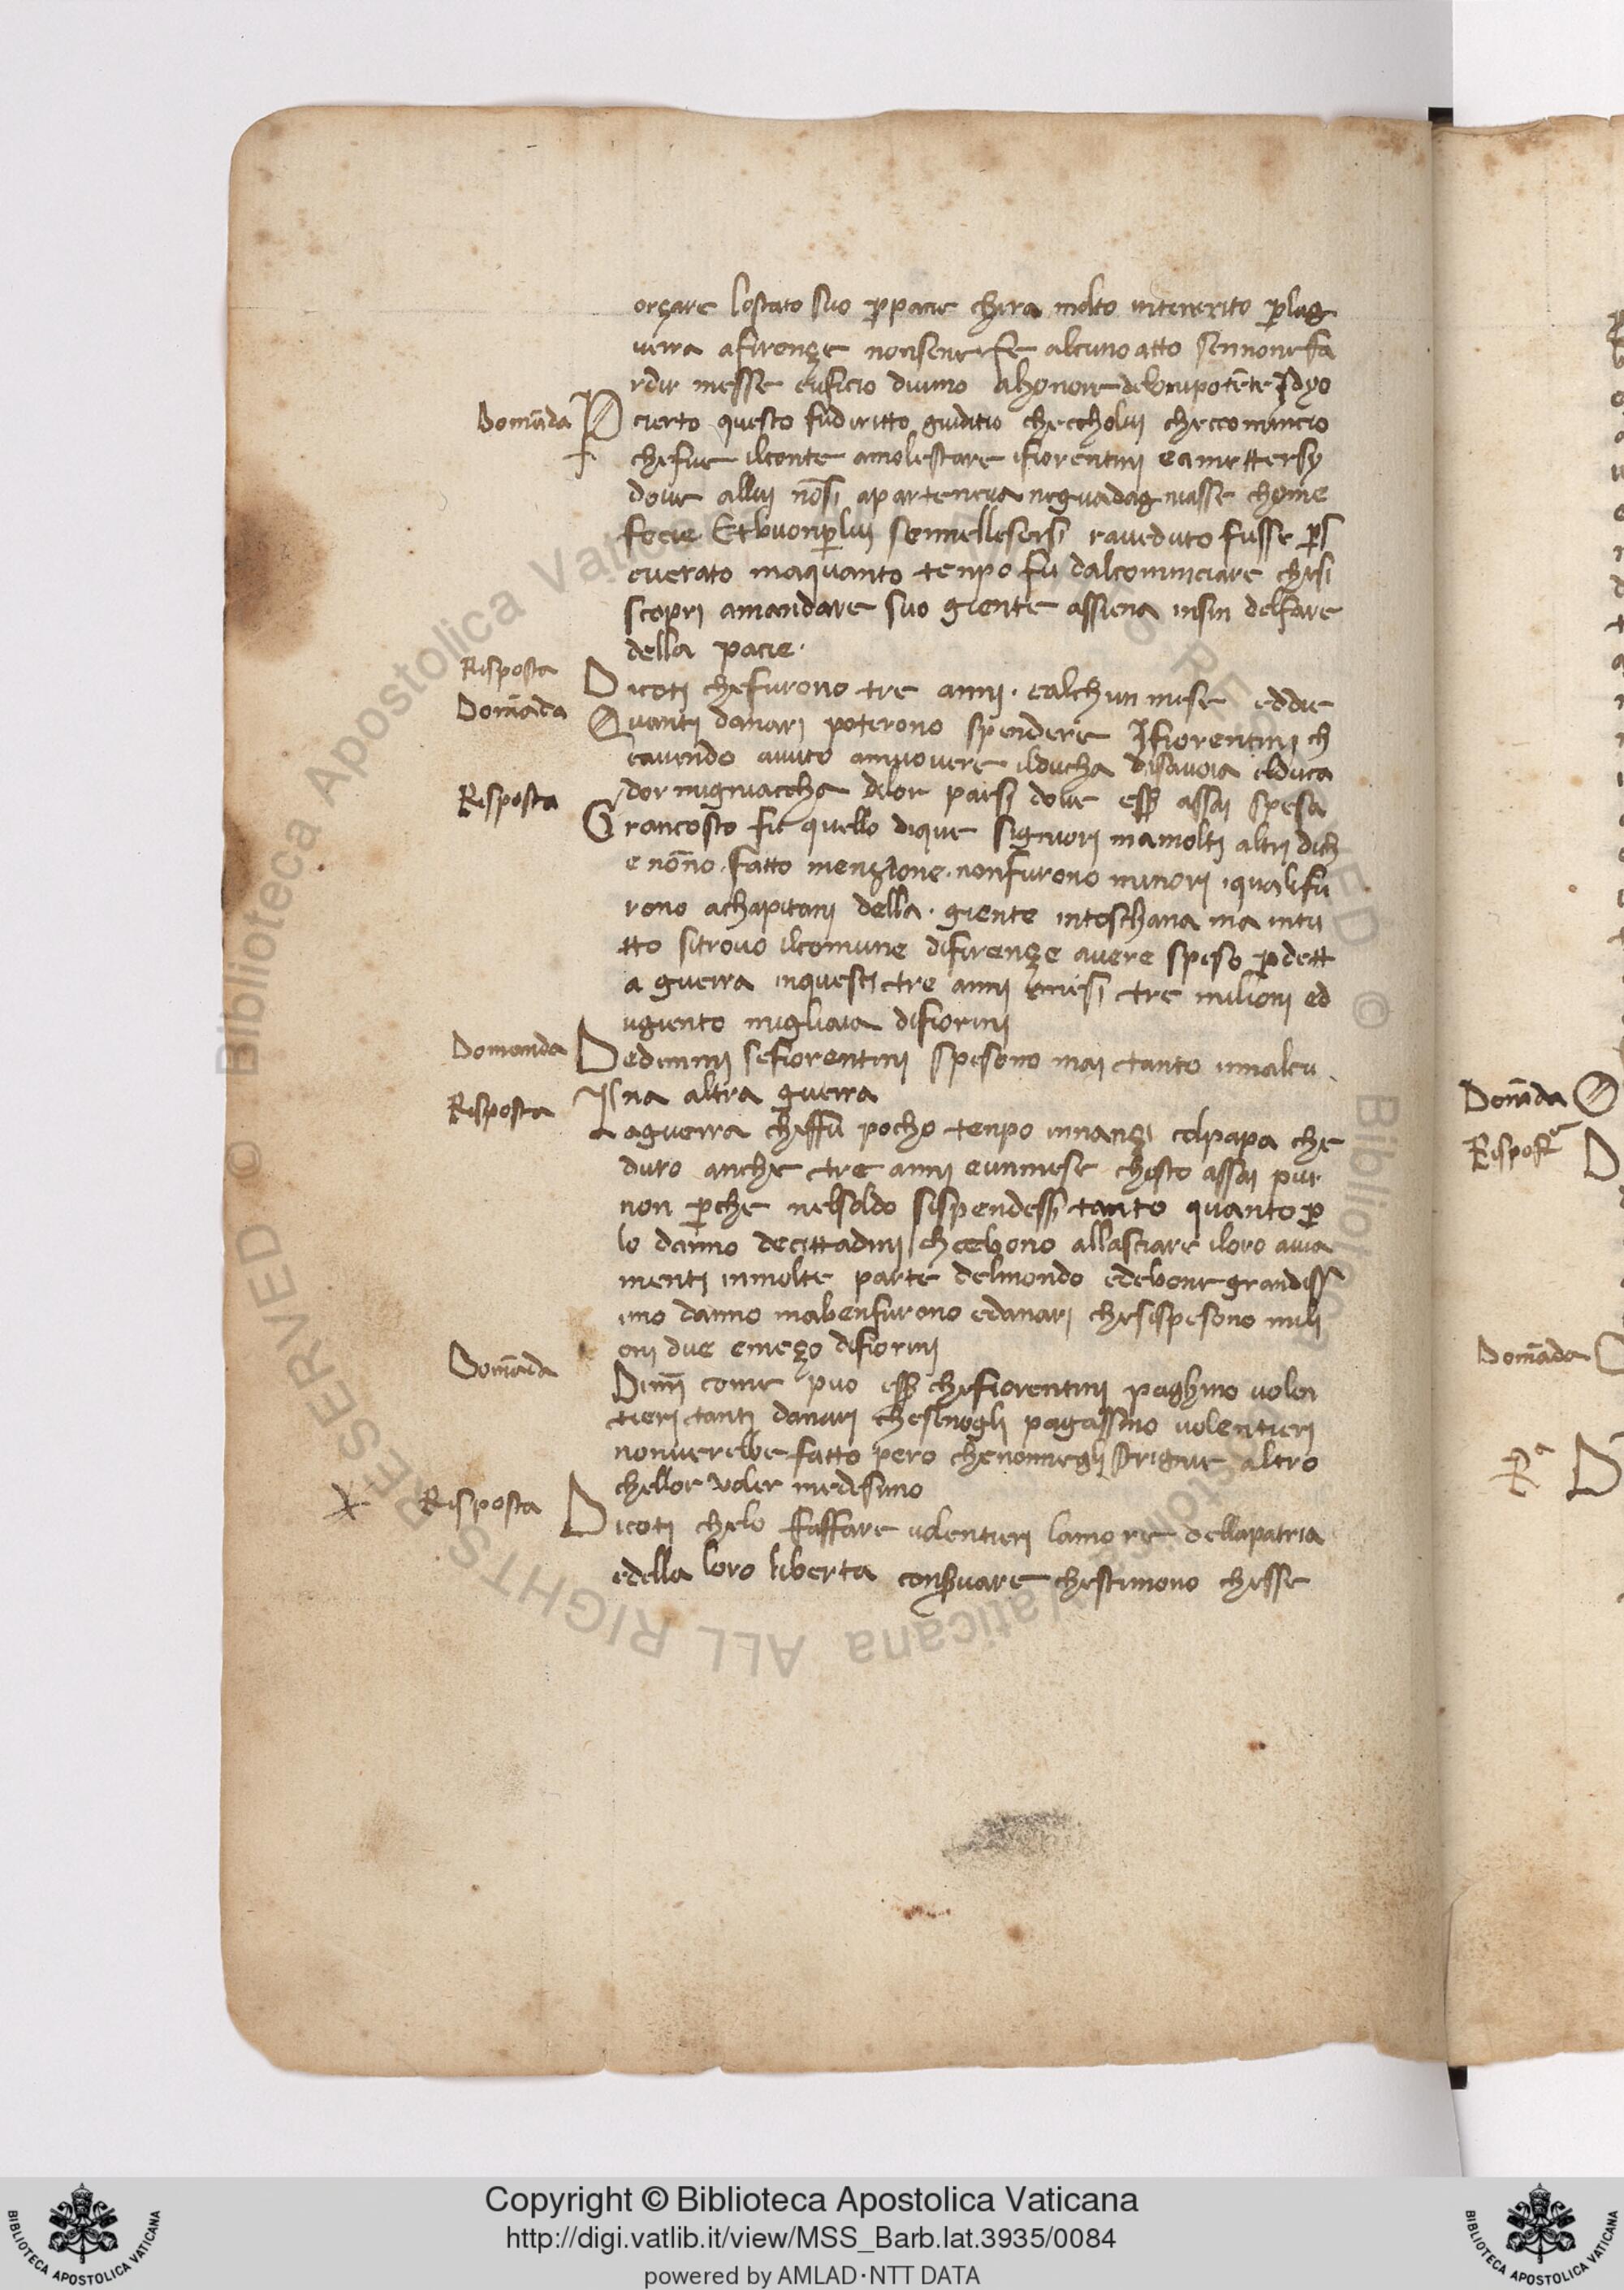 orçare lostato suo ꝑpacie chera molto intenerito ꝑlag
uerra afirençe nonsenefe alcuno atto sennonefa
rdir messe euficio diuino alhonore delonipotēte Idyo
Domāda P cierto questo fudiritto giuditio checcholui checcomincio
chefue ilconte amolestare ifiorentini eamettersy
doue allui nōsi aparteneua neguadagniasse chome
fecie Etbuonꝑlui sennellesersi raueduto fusse ꝑs
euerato maquanto tenpo fu dalcominciare chesi
scopri amandare suo giente assiena insin delfare
della pacie.
Risposta Dicoti chefurono tre anni. ealchun mese eddie
Domāda Quanti danari poterono spendere Ifiorentini ch
eauendo auuto amuouere ilducha disauoia elduca
dormigniaccha delor paesi doue ess̄ assai spesa
Risposta Grancosto fu quello dique signiori mamolti altri dich
e nōno fatto mençione. nonfurono minori. qualifu
rono achapitani della. giente intoschana ma intu
tto sitrouo ilcomune difirençe auere speso ꝑdett
a guerra inquesti tre anni emesi tre milioni ed
ugiento migliaia difiorini
Domanda Dedimmi sefiorentini spesono mai tanto innalcu
na altra guerra
Risposta Laguerra cheffu pocho tenpo innançi colpapa che
duro anche tre anni eunmese chosto assai pur
non ꝑche nelsoldo sispendess̄ tanto quantoꝑ
lo danno decittadini chcebono allasciare iloro auia
menti inmolte parte delmondo edebone grandiss
imo danno mabenfurono edanari chesispesono mili
oni due emeço difiorini
Domāda Dimmi come puo ess̄ chefiorentini paghino uolen
tieri tanti danari chesenogli pagassino uolentieri
nonuerebbe fatto pero chenonnegli strigne altro
chellor uoler medesimo
Risposta Dicoti chelo faffare uolentieri lamore dellapatria
edella loro liberta consꝑuare chestimono chesse
Domāda
Rispost
Domāda
Rª
Copyright © Biblioteca Apostolica Vaticana
http://digi.vatlib.it/view/MSS_Barb.lat.3935/0084
powered by AMLAD·NTT DATA
BIBLIOTECA APOSTOLICA VATICANA
BIBLIOTECA APOSTOLICA VATICANA
© Biblioteca Apostolica Vaticana ALL RIGHTS RESERVED